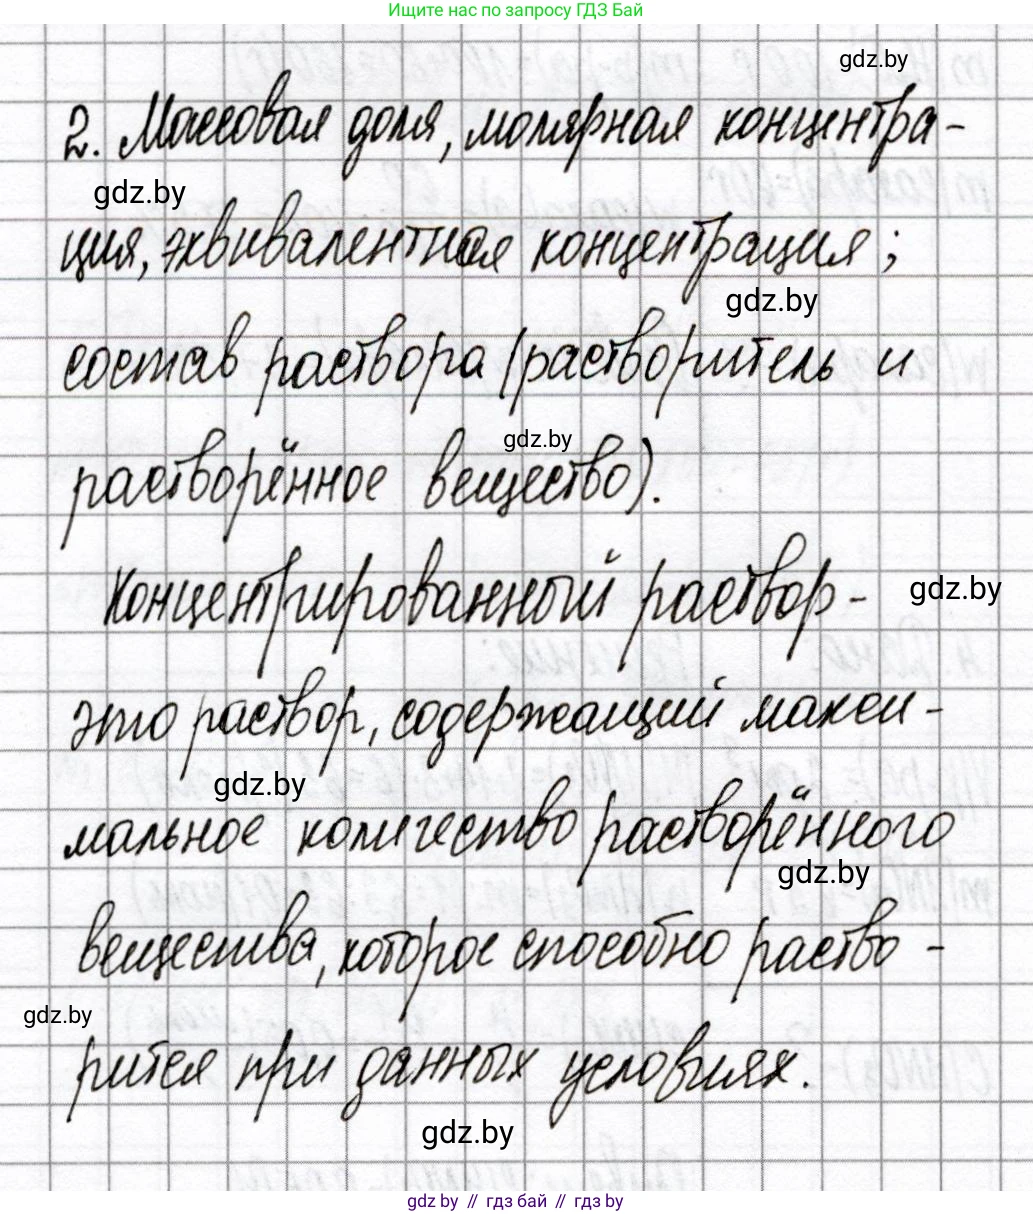 Ищите нас по запросу ГДЗ Бай
gdz.by
2. Массовая доля, молярная концентра-
gdz.by
ция, эквивалентная концентрация;
gdz.by
состав раствора (растворитель и
gdz.by
растворённое вещество).
Концентрированный раствор-
gdz.by
это раствор, содержащий макси-
gdz.by
мальное количество растворённого
gdz.by
вещества, которое способно раство-
gdz.by
рится при данных условиях.
gdz.by
gdz.by // гдз бай // гдз by